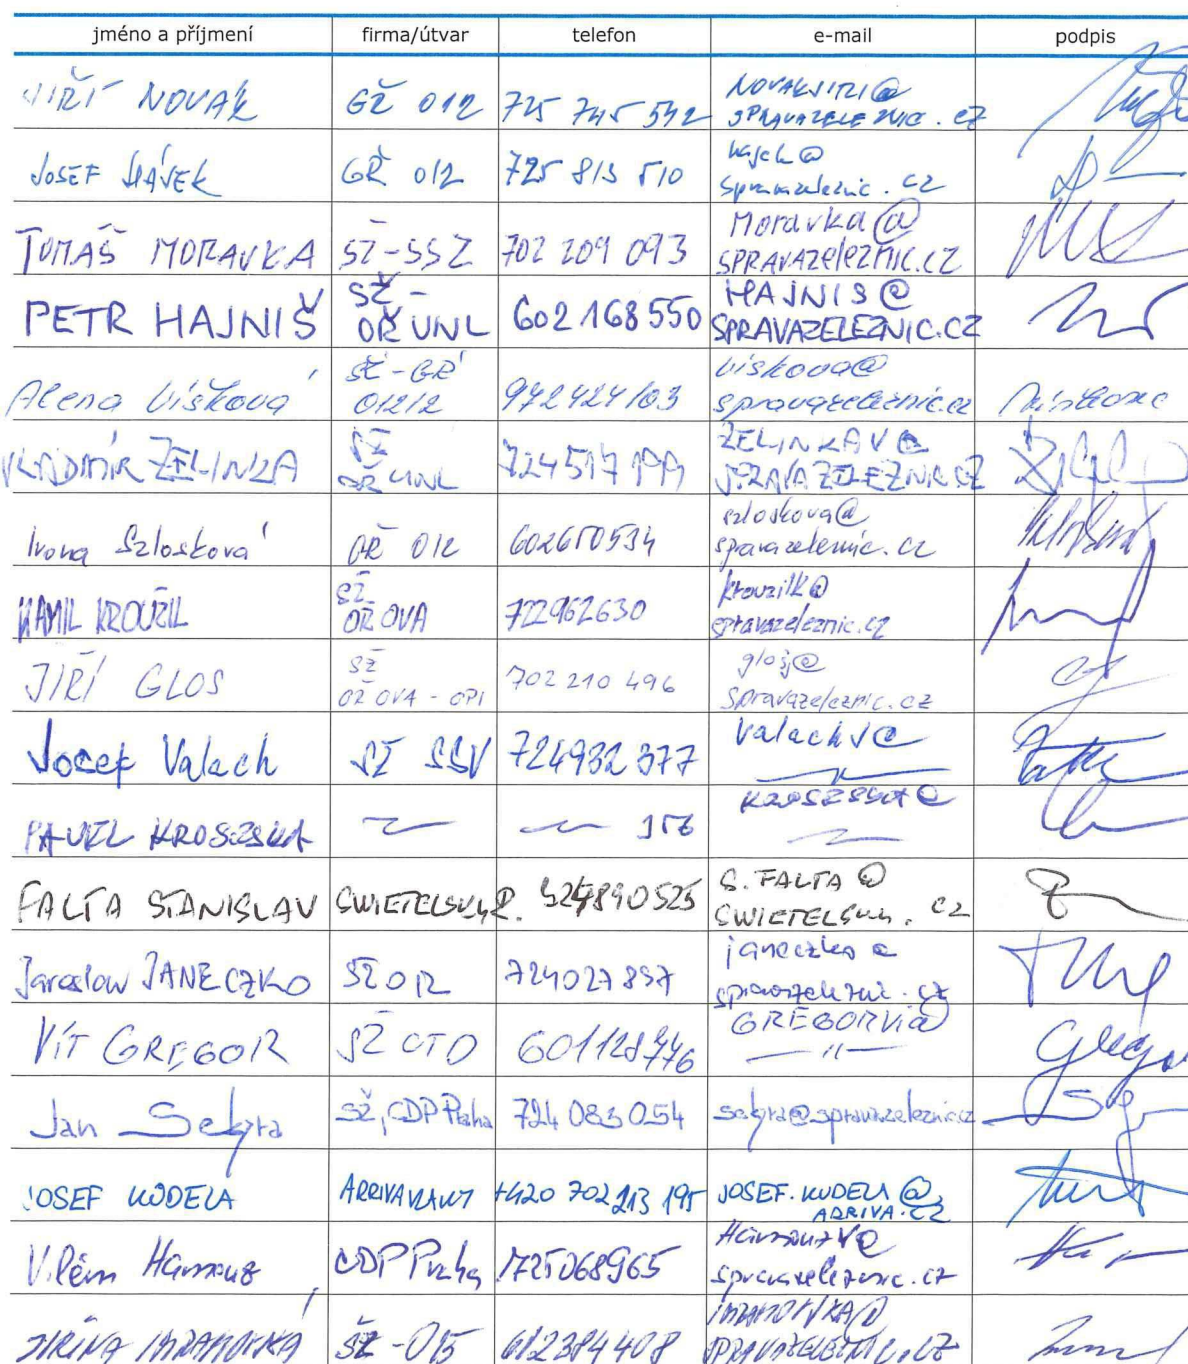 jméno a příjmení firma/útvar telefon e-mail podpis
JIŘÍ NOVÁK GŘ 012 725 745 542 NOVAKJIRI@
SPRAVAZELEZNIC.CZ
JOSEF GŘ 012 725 813 510
spravazeleznic.cz
TOMÁŠ MORAVKA SŽ-SSZ 702 209 093 Moravka@
SPRAVAZELEZNIC.CZ
PETR HAJNIŠ SŽ -
OŘ UNL 602 168 550 HAJNIS@
SPRAVAZELEZNIC.CZ
Alena Víšková SŽ-GŘ
012/2 972 424 103 viskova@
spravazeleznic.cz
VLADIMÍR ZELINKA SŽ
OŘ UNL 724517199 ZELINKAV@
SPRAVAZELEZNIC.CZ
Ivona Szlosková 012 602650534 szloskova@
spravazeleznic.cz
KAMIL KROUŽIL SŽ
OŘ OVA 722962630 krouzilk@
spravazeleznic.cz
JIŘÍ GLOS SŽ
OŘ OVA - OPI 702 210 496 glosj@
spravazeleznic.cz
Josef Valach SŽ SSV 724932 377 valachJ@
— " —
PAVEL — " — — " — 156
— " —
FALTA STANISLAV 724890525 S.FALTA@
SWIETELSKY.CZ
Jaroslaw JANECZKO SŽ O12 724027837 janeczko@
spravazeleznic.cz
VÍT GREGOR SŽ CTD 601128776 GREGORVi@
— " —
Jan Sekyra SŽ, CDP Praha 724 083 054 sekyra@spravazeleznic.cz
JOSEF KUDELA ARRIVA VLAKY +420 702 213 195 JOSEF.KUDELA@
ARRIVA.CZ
Vilém CDP Praha 725068965
spravazeleznic.cz
SŽ -O15 612384408
SPRAVAZELEZNIC.CZ